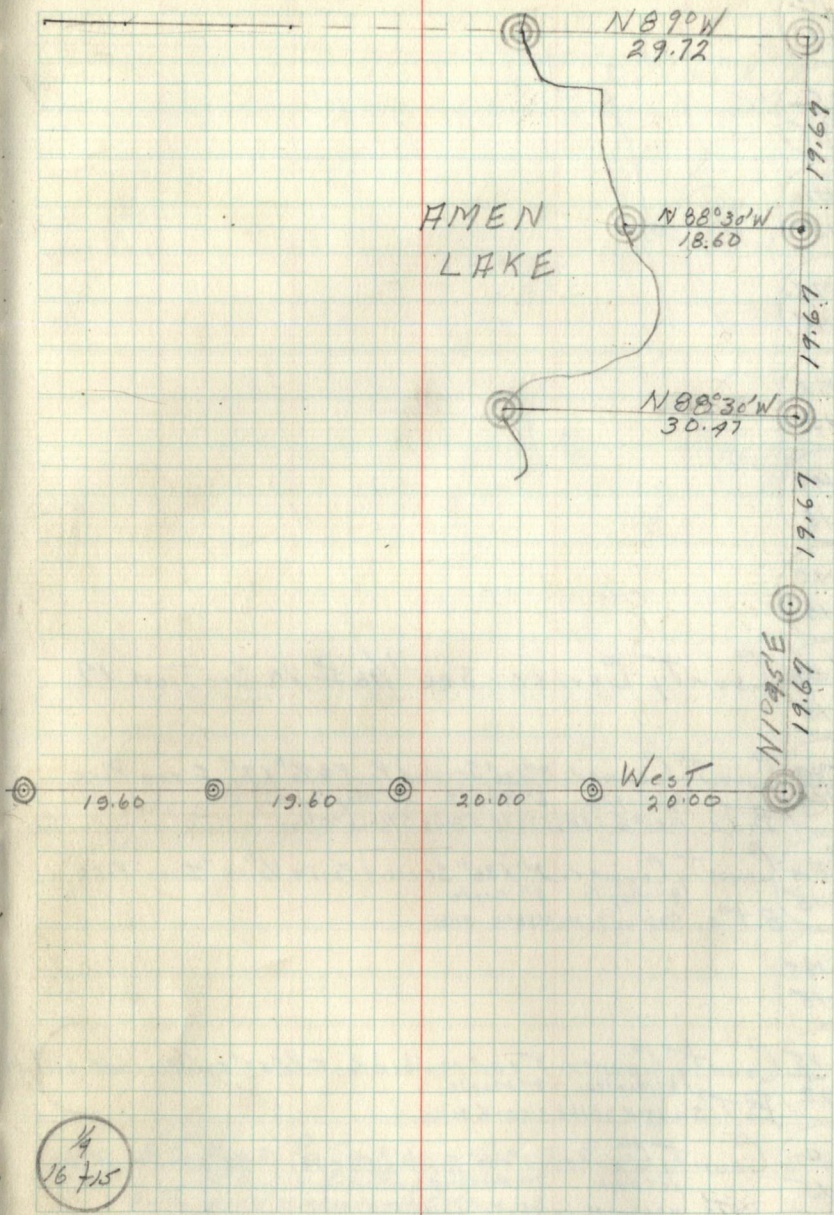 N 89° W
29.72
19.67
AMEN
LAKE
N 88° 30' W
18.60
19.67
N 88° 30' W
30.47
19.67
N 1° 45' E
19.67
West
19.60
19.60
20.00
20.00
1/4
16 + 15